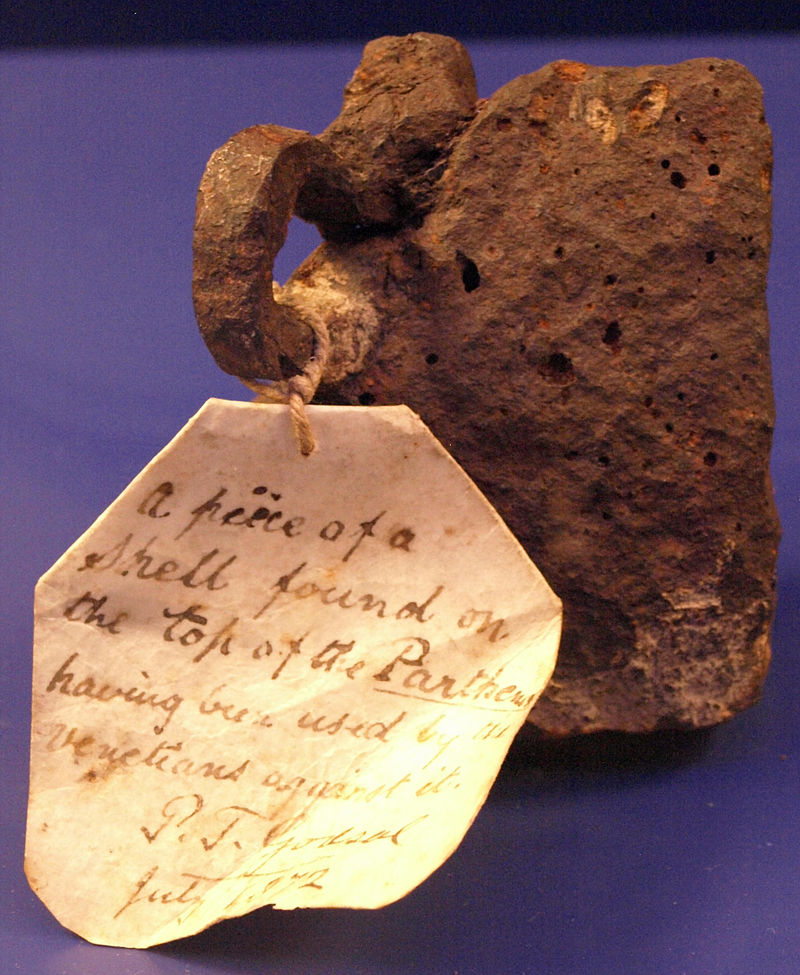 a piece of a
shell found on
the top of the Parthenon
having been used by the
Venetians against it.
P. T. Godsal
July 1872